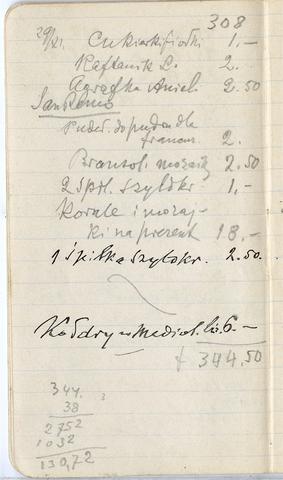 308
29/XI. Cukierki fiołki 1.-
Kaftanik L. 2.
Agrafka Anieli 2.50
San Remo
Puder. do pudru dla
2.
Bransol. mozaik 2.50
2 śpil. szyldkr 1.-
Korale i mozaj-
ki na prezent 18.-
1 śpilka szyldkr. 2.50.
Kołdry w Mediol. 6.-
+ 344.50
344.
38
2752
1032
130,72